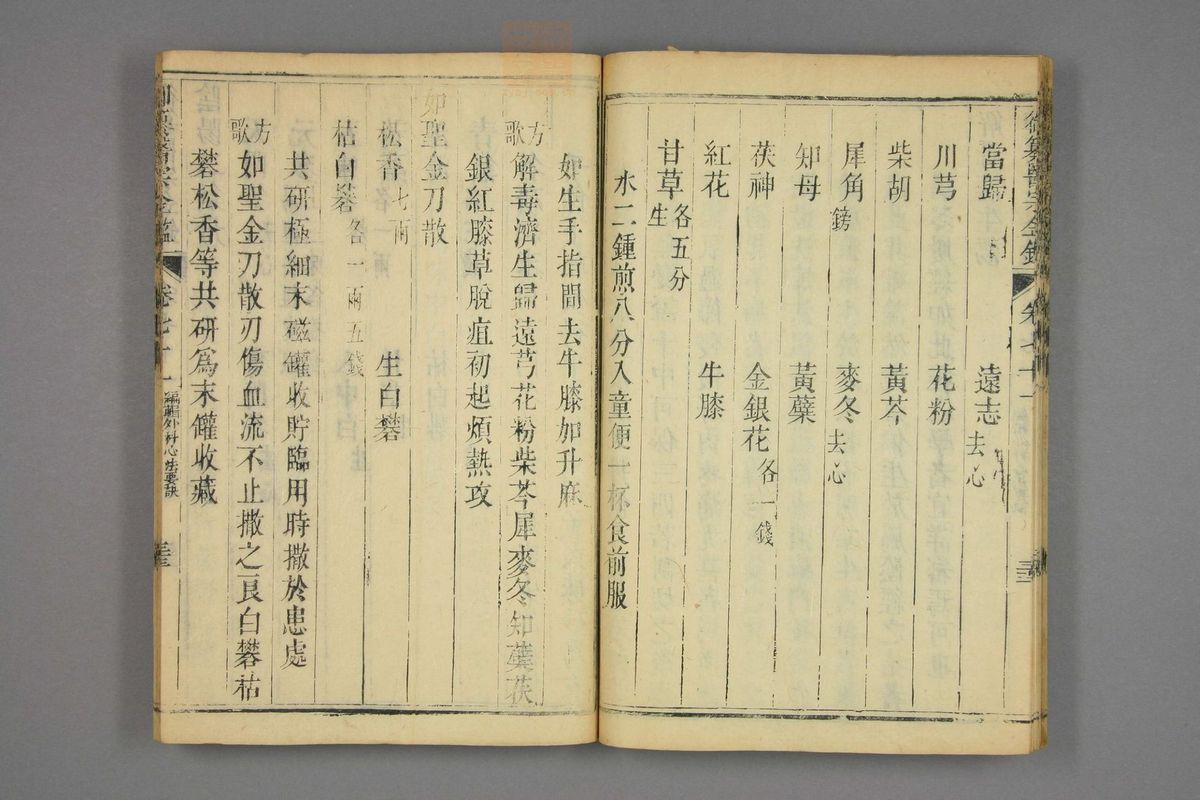 當歸 遠志去心
川芎 花粉
柴胡 黃芩
犀角鎊 麥冬去心
知母 黃蘗
茯神 金銀花各一錢
紅花 牛膝
甘草生各五分
水二鍾煎八分入童便一杯食前服
如生手指間去牛膝加升麻
方歌 解毒濟生歸遠芎花粉柴芩犀麥冬知蘗茯
銀紅膝草脫疽初起煩熱攻
如聖金刀散
松香七兩 生白礬
枯白礬各一兩五錢
共研極細末磁罐收貯臨用時撒於患處
方歌 如聖金刀散刃傷血流不止撒之良白礬枯
礬松香等共研爲末罐收藏
卷七十一 編輯外科心法要訣